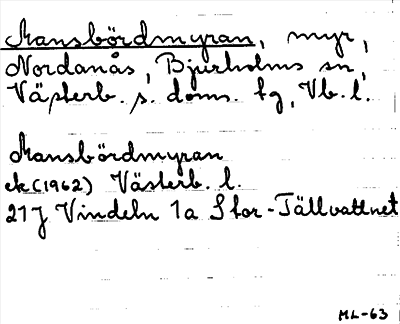 Mansbördmyran, myr,
Nordanås, Bjurholms sn,
Västerb. s. doms. tg, Vb. l.
Mansbördmyran
ek (1962) Västerb. l.
21J Vindeln 1a Stor-Tällvattnet
ML-63